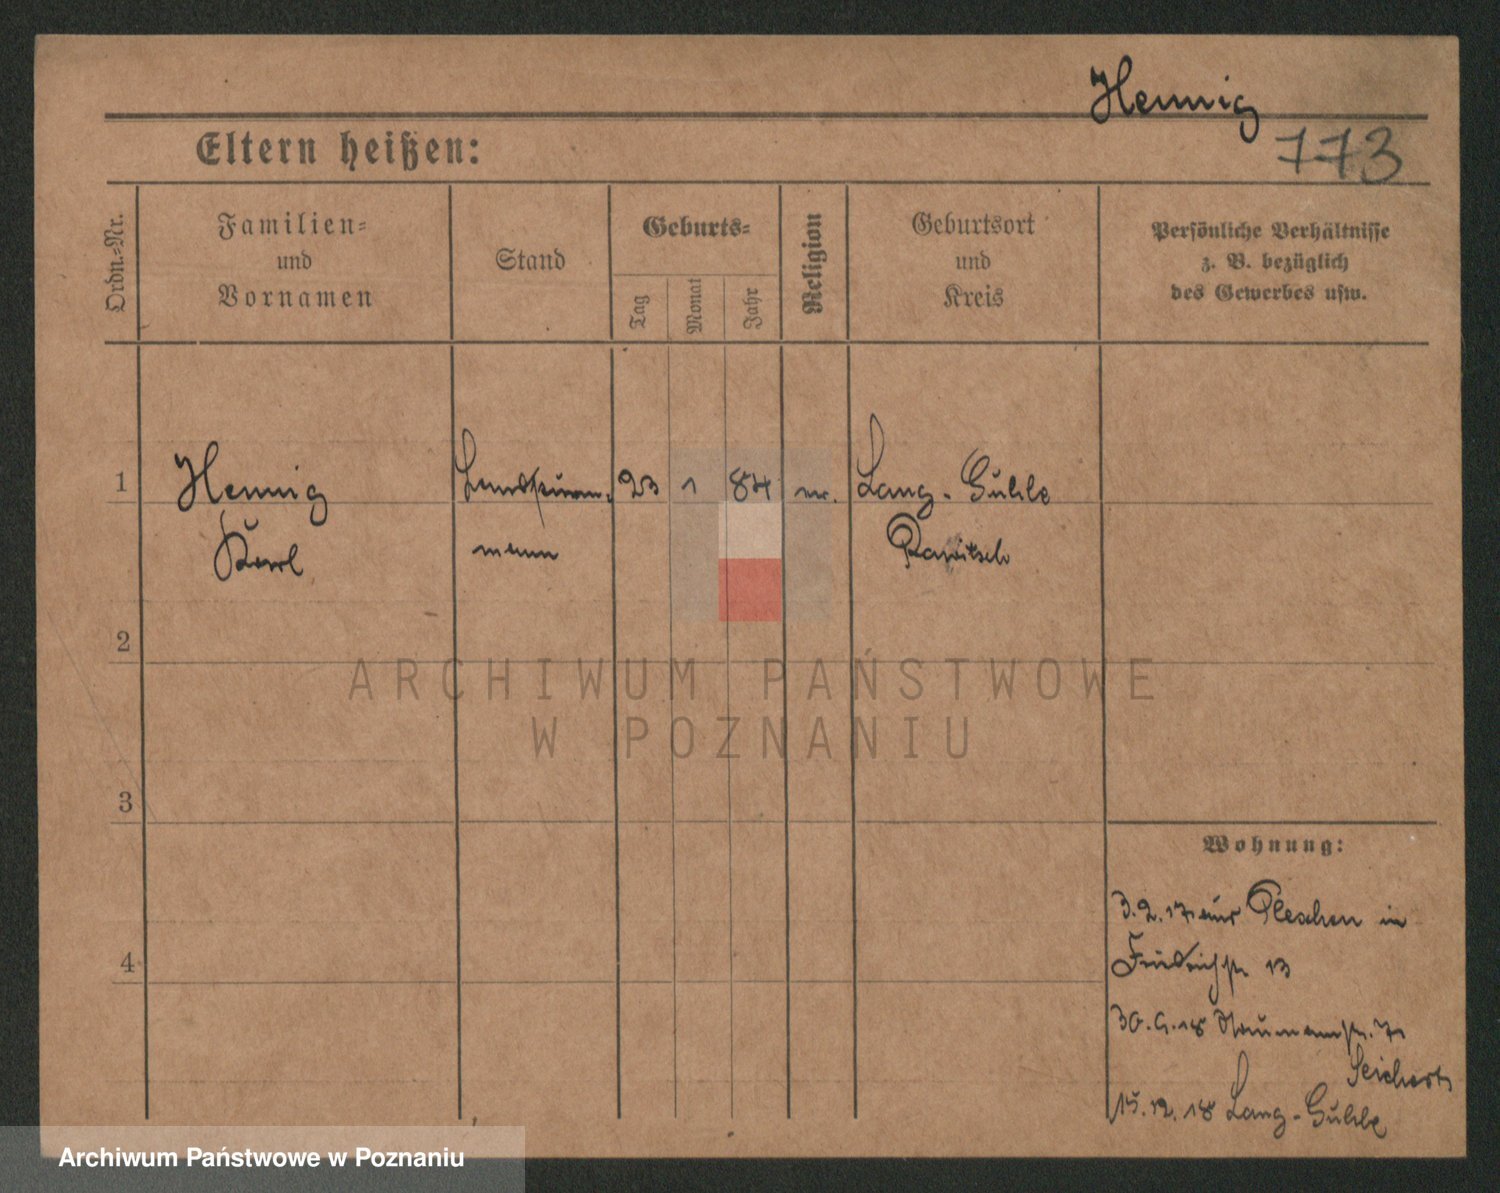 Hennig
773
Eltern heißen:
Ordn.-Nr.
Familien-
und
Vornamen
Stand
Geburts-
Tag
Monat
Jahr
Religion
Geburtsort
und
Kreis
Persönliche Verhältnisse
z. B. bezüglich
des Gewerbes usw.
1
Hennig
Karl
Landsturm-
mann
23 1 84
Lang-Guhle
Rawitsch
2
3
4
Wohnung:
3.2.17 aus Pleschen in
Friedrichstr 13
30.9.18 Naumannstr. 7
Seichert
15.12.18 Lang-Guhle
ARCHIWUM PAŃSTWOWE
W POZNANIU
Archiwum Państwowe w Poznaniu